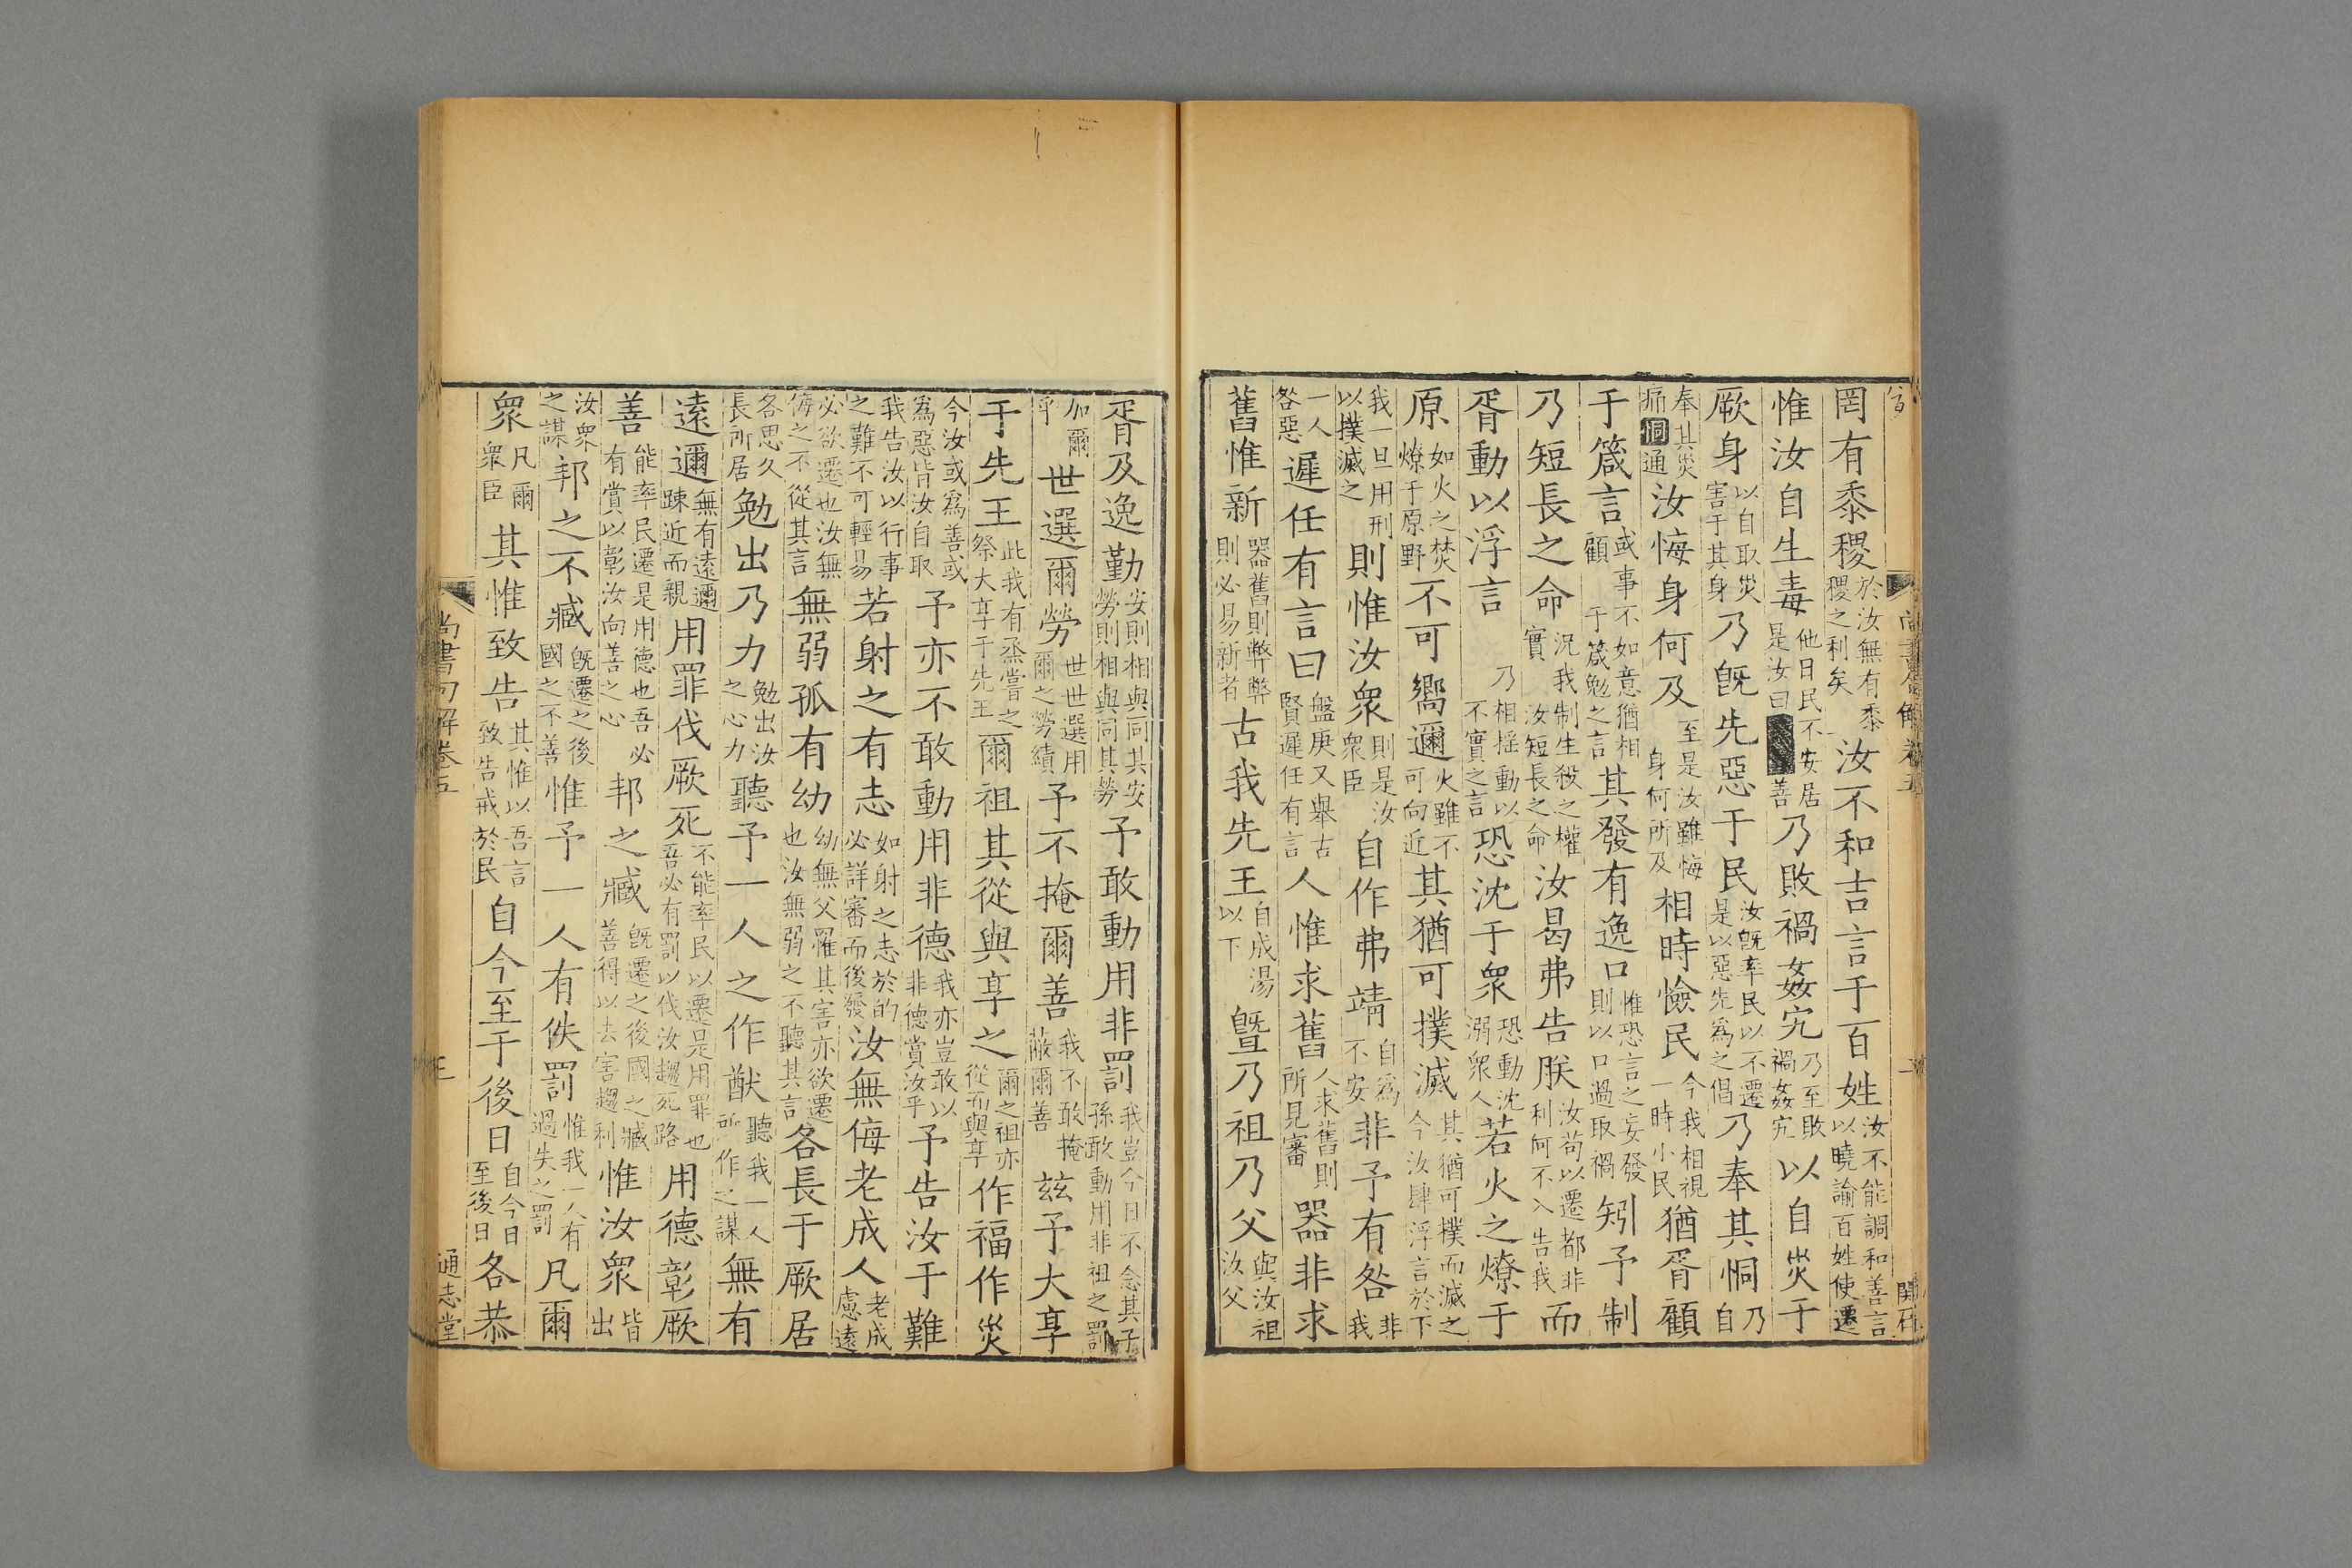 罔有黍稷於汝無有黍稷之利矣汝不和吉言于百姓汝不能調和善言以曉諭百姓使遷
惟汝自生毒他日民不安居是汝曰善乃敗禍姦宄乃至敗禍姦宄以自災于
厥身以自取災害于其身乃旣先惡于民汝旣率民以不遷是以惡先爲之倡乃奉其恫乃自
奉其災痛恫通汝悔身何及至是汝雖悔身何所及相時憸民今我相視一時小民猶胥顧
于箴言或事不如意猶相顧于箴勉之言其發有逸口惟恐言之妄發則以口過取禍矧予制
乃短長之命況我制生殺之權實汝短長之命汝曷弗告朕汝苟以遷都非利何不入告我而
胥動以浮言乃相搖動以不實之言恐沈于衆恐動沈溺衆人若火之燎于
原如火之焚燎于原野不可嚮邇火雖不可向近其猶可撲滅其猶可撲而滅之今汝肆浮言於下
我一旦用刑以撲滅之則惟汝衆則是汝衆臣自作弗靖自爲不安非予有咎非我
一人咎惡遲任有言曰盤庚又舉古賢遲任有言人惟求舊人求舊則所見審器非求
舊惟新器舊則弊弊則必易新者古我先王自成湯以下曁乃祖乃父與汝祖汝父
胥及逸勤安則相與同其安勞則相與同其勞予敢動用非罰我豈今日不念其子孫敢動用非祖之罰
加爾乎世選爾勞世世選用爾之勞績予不掩爾善我不敢掩蔽爾善玆予大享
于先王此我有烝嘗之祭大享于先王爾祖其從與享之爾之祖亦從而與享作福作災
今汝或爲善或爲惡皆汝自取予亦不敢動用非德我亦豈敢以非德賞汝乎予告汝于難
我告汝以行事之難不可輕易若射之有志如射之志於的必詳審而後發汝無侮老成人老成慮遠
必欲遷也汝無侮之不從其言無弱孤有幼幼無父罹其害亦欲遷也汝無弱之不聽其言各長于厥居
各思久長所居勉出乃力勉出汝之心力聽予一人之作猷聽我一人所作之謀無有
遠邇無有遠邇踈近而親用罪伐厥死不能率民以遷是用罪也吾必有罰以伐汝趨死路用德彰厥
善能率民遷是用德也吾必有賞以彰汝向善之心邦之臧旣遷之後國之臧善得以去害趨利惟汝衆皆出
汝衆之謀邦之不臧旣遷之後國之不善惟予一人有佚罰惟我一人有過失之罰凡爾
衆凡爾衆臣其惟致告其惟以吾言致告戒於民自今至于後日自今日至後日各恭
尚書句解卷五
通志堂